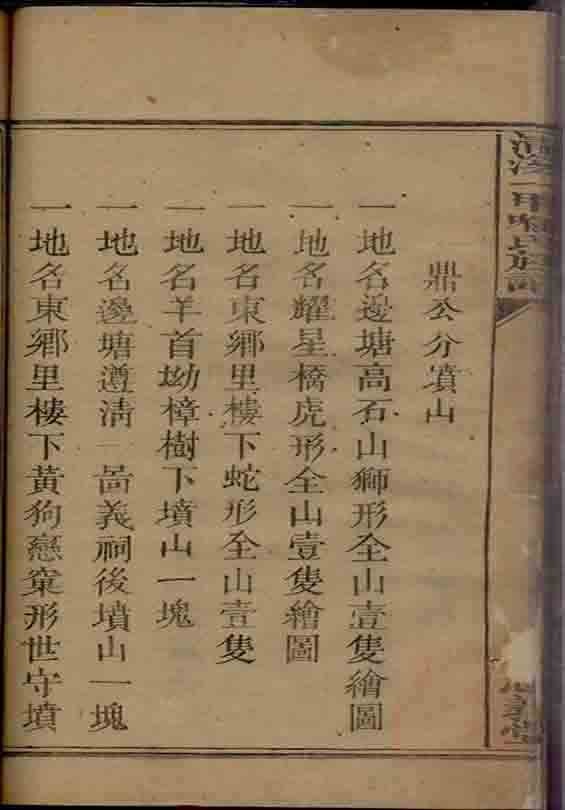 鼎公分墳山
一地名邊塘高石山獅形全山壹隻繪圖
一地名耀星橋虎形全山壹隻繪圖
一地名東鄉里樓下蛇形全山壹隻
一地名羊首坳樟樹下墳山一塊
一地名邊塘遵清一啚義祠後墳山一塊
一地名東鄉里樓下黃狗戀窠形世守墳